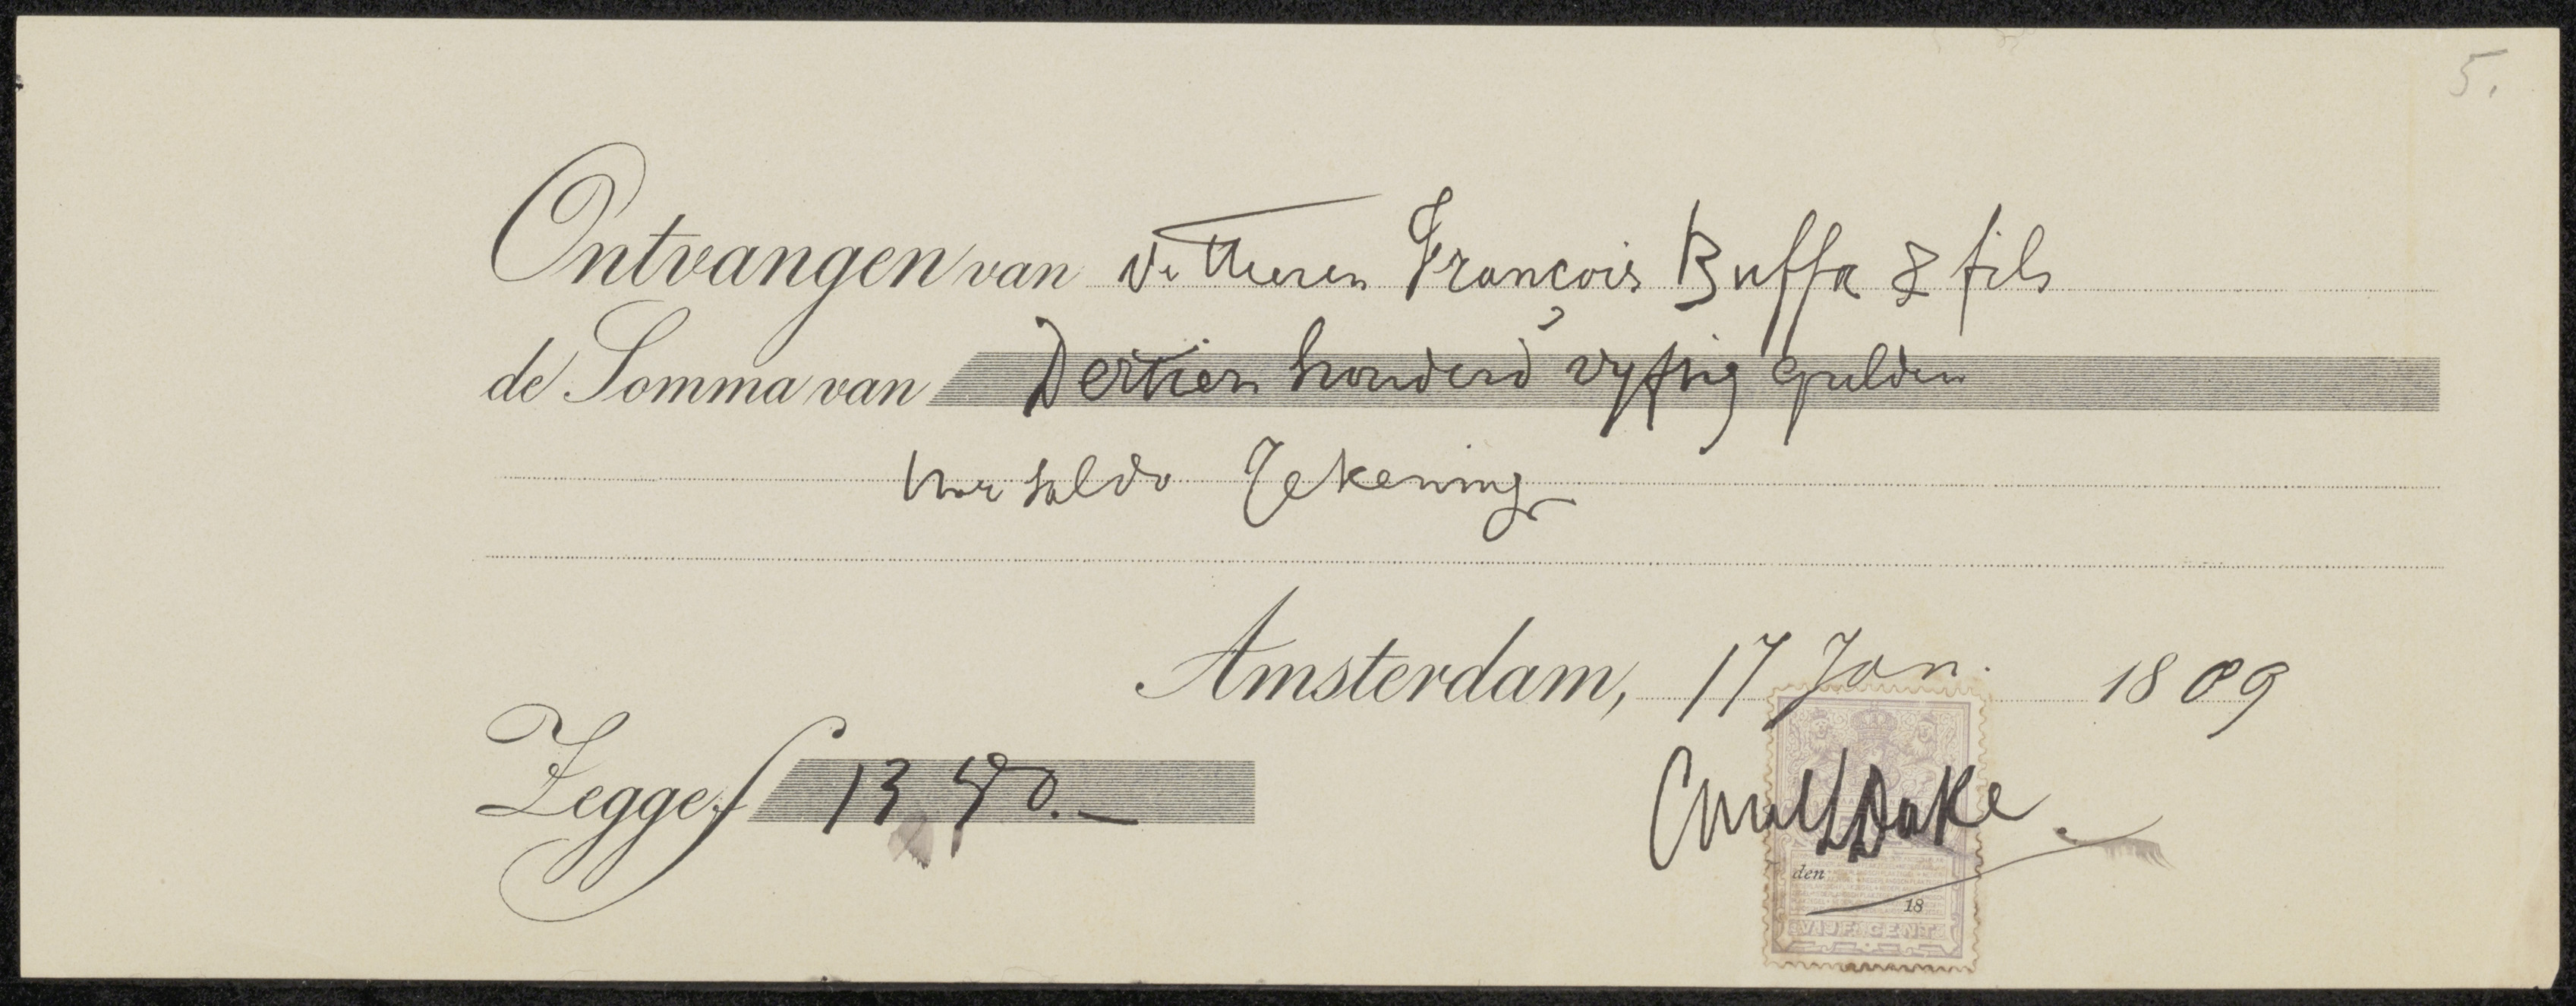 5.
Ontvangen van de Heeren François Buffa & fils
de Somma van Dertien honderd vyftig gulden
voor saldo rekening
Amsterdam, 17 Jan. 1809
Zegge f 1350.—
Dake
den
18
VIJF CENT